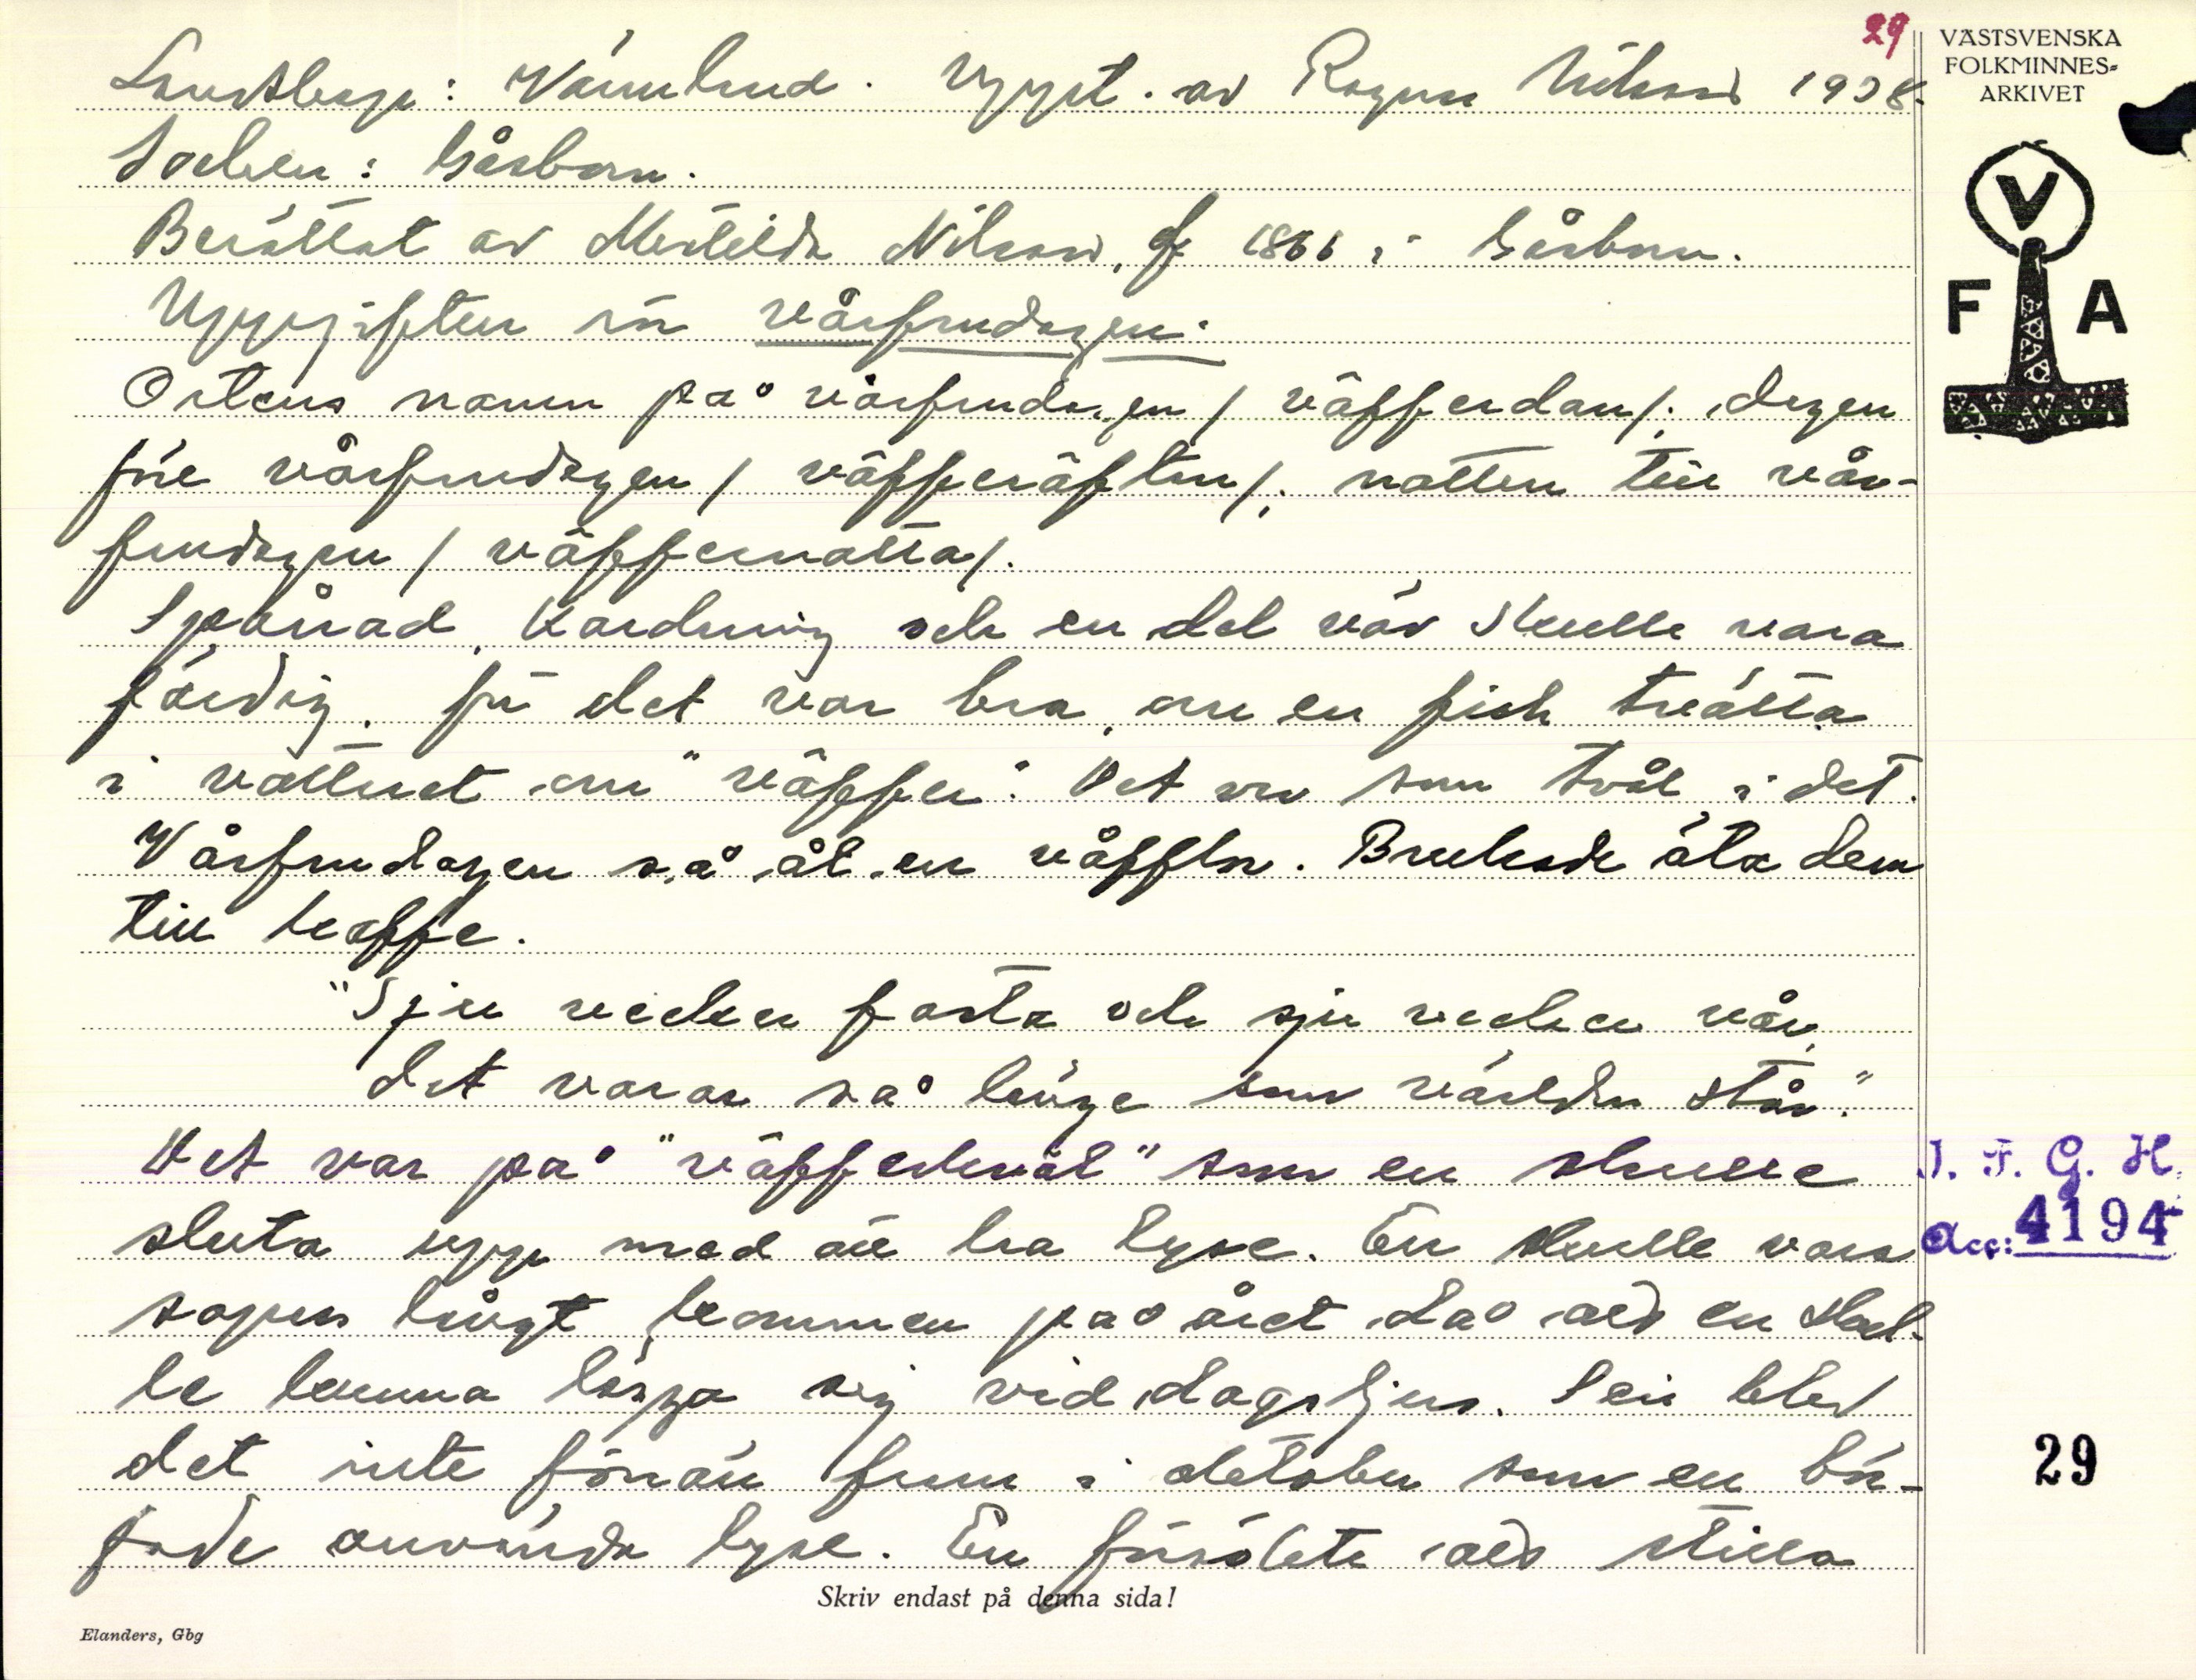 29
VÄSTSVENSKA
FOLKMINNES=
ARKIVET
Landskap: Värmland. Uppt. av Ragnar Nilsson 1938.
Socken: Gåsborn.
Berättat av Matilda Nilsson, f. 1861 i Gåsborn.
V
F A
Uppgiften är vårfrudagen.
Ortens namn på vårfrudagen / väfferdan /. dagen
före vårfrudagen / väfferäften /. natten till vår-
frudagen / väffernatta /.
Spånad, kardning och en del väv skulle vara
färdig. för det var bra, om en fick tvätta
i vattnet om "väffer". Det var som tvål i det.
Vårfrudagen så åt en våfflor. Brukade äta dem
till kaffe.
"Sju veckor fasta och sju veckor vår,
det varar så länge som världen står."
Det var på "väfferkväl" som en skulle
sluta upp med å ha lyse. En skulle vara
så pass långt kommen på året då att en skul-
le kunna lägga sig vid dagsljus. Sen blev
det inte förrän fram i oktober som en bör-
jade använda lyse. En försökte att ställa
J. F. G. H.
Acc: 4194
29
Skriv endast på denna sida!
Elanders, Gbg